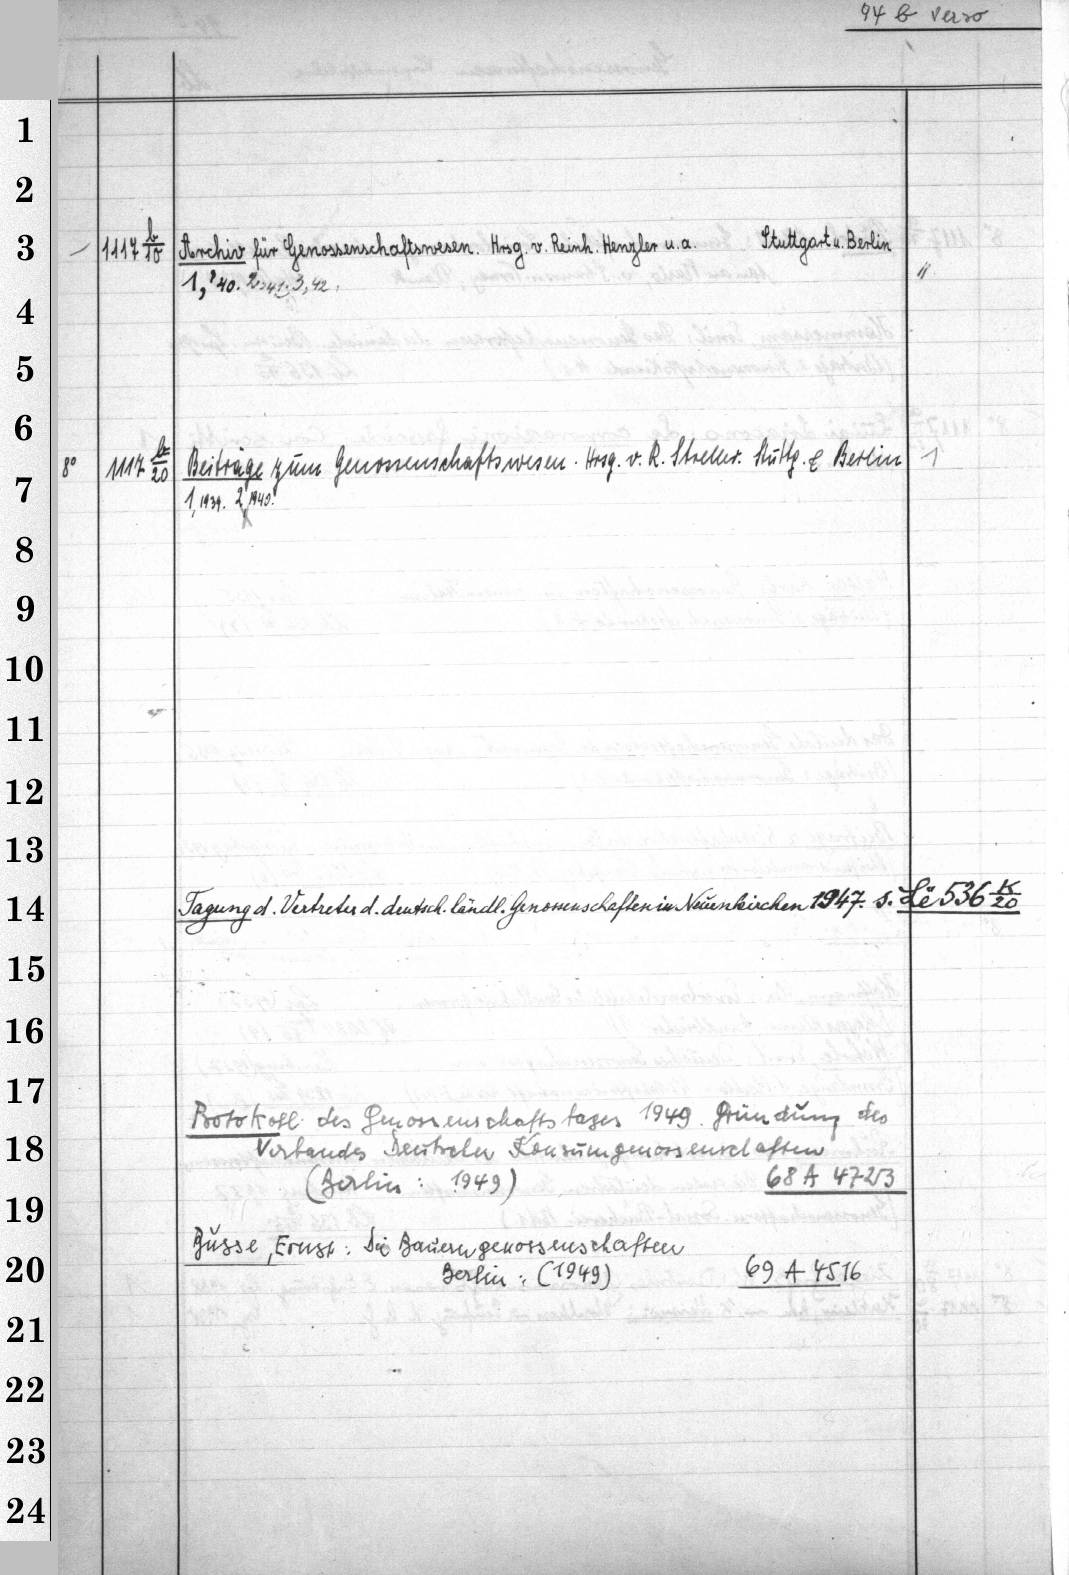 94 b verso
1
2
3 — 1117 b/10 Archiv für Genossenschaftswesen. Hrsg. v. Reinh. Henzler u. a. Stuttgart u. Berlin "
1, '40. 2, 41; 3, 42.
4
5
6
8° 1117 b/20 Beiträge zum Genossenschaftswesen. Hrsg. v. R. Streller. Stuttg. & Berlin 1
7 1, 1939. 2, 1940.
8
9
10
11
12
13
14 Tagung d. Vertreter d. deutsch. ländl. Genossenschaften in Neuenkirchen 1947. s. Lë 536 K/20
15
16
17
Protokoll des Genossenschaftstages 1949. Gründung des
18 Verbandes Deutscher Konsumgenossenschaften
(Berlin: 1949) 68 A 4723
19
Büsse, Ernst: Die Bauerngenossenschaften
20 Berlin: (1949) 69 A 4516
21
22
23
24